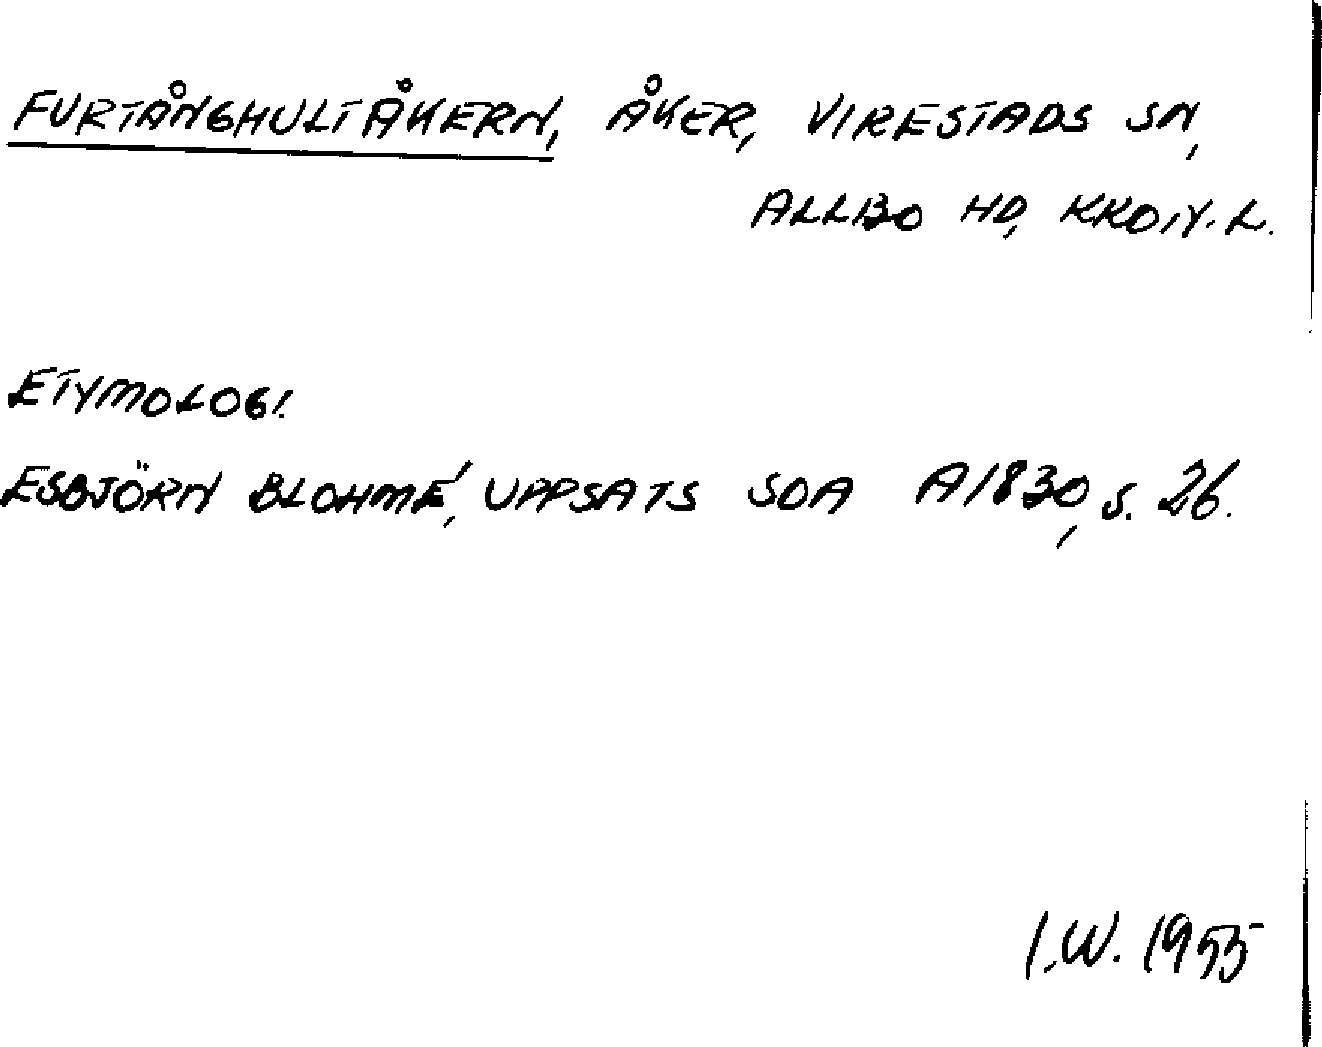 FURTÅNGHULTÅKERN, ÅKER, VIRESTADS SN,
ALLBO HD, KRON. L.
ETYMOLOGI.
ESBJÖRN BLOHMÉ, UPPSATS SOA A1830, S. 26.
I.W. 1955